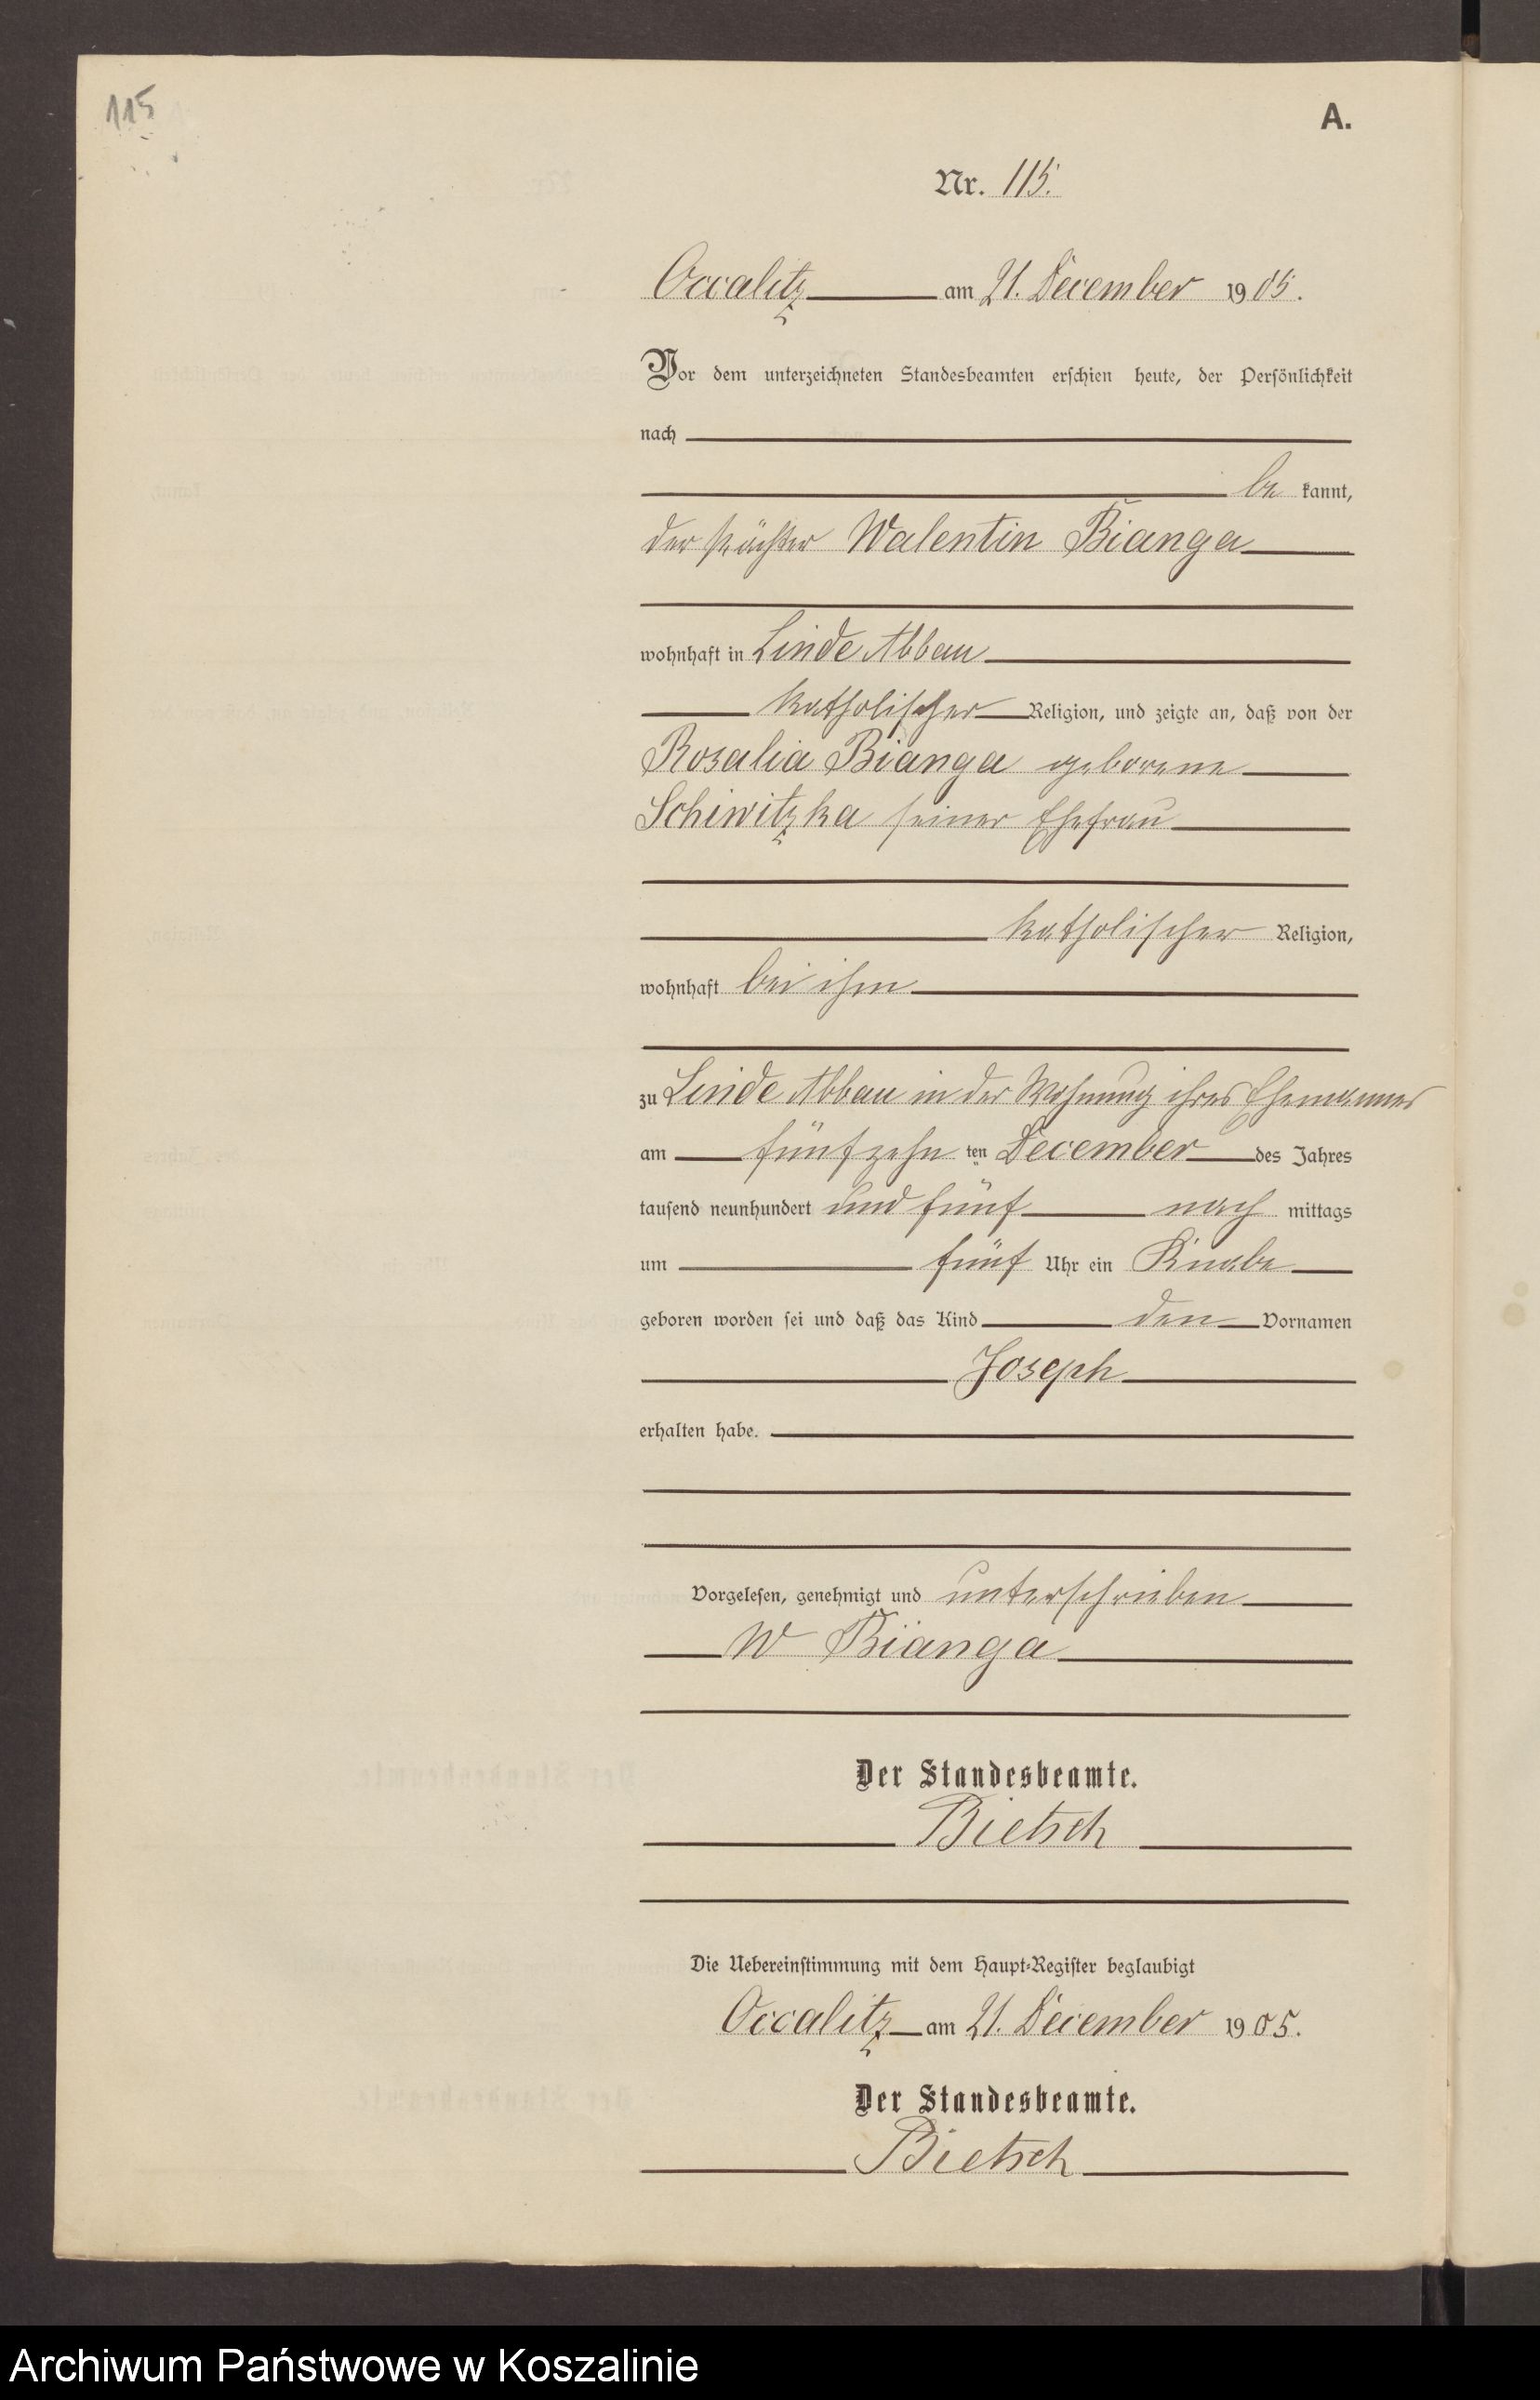 115
A.
Nr. 115.
Occalitz am 21. December 1905.
Vor dem unterzeichneten Standesbeamten erschien heute, der Persönlichkeit
nach
be kannt,
der Pächter Walentin Bianga
wohnhaft in Linde Abbau
katholischer Religion, und zeigte an, daß von der
Rosalia Bianga geborene
Schiwitzka seiner Ehefrau
katholischer Religion,
wohnhaft bei ihm
zu Linde Abbau in der Wohnung ihres Ehemannes
am fünfzehn ten December des Jahres
tausend neunhundert und fünf nach mittags
um fünf Uhr ein Knabe
geboren worden sei und daß das Kind den Vornamen
Joseph
erhalten habe.
Vorgelesen, genehmigt und unterschrieben
W Bianga
Der Standesbeamte.
Bietsch
Die Uebereinstimmung mit dem Haupt-Register beglaubigt
Occalitz am 21. December 1905.
Der Standesbeamte.
Bietsch
Archiwum Państwowe w Koszalinie